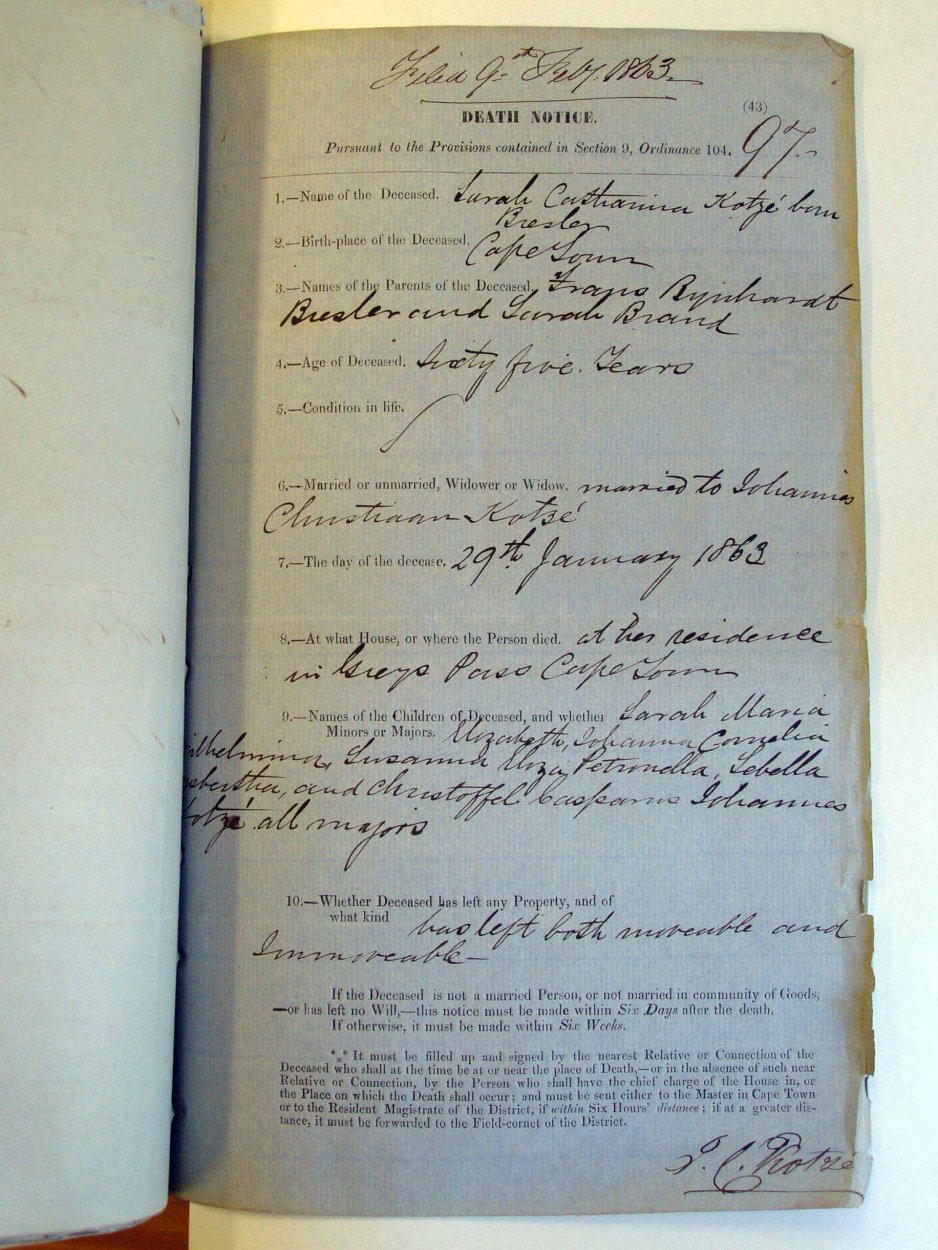 Filed 9th Feby. 1863.
(43)
DEATH NOTICE.
97
Pursuant to the Provisions contained in Section 9, Ordinance 104.
1.—Name of the Deceased. Sarah Catharina Kotzé born
Bresler
2.—Birth-place of the Deceased. Cape Town
3.—Names of the Parents of the Deceased. Frans Rynhardt
Bresler and Sarah Brand
4.—Age of Deceased. Sixty five Years
5.—Condition in life.
6.—Married or unmarried, Widower or Widow. married to Johannes
Christiaan Kotzé
7.—The day of the decease. 29th January 1863
8.—At what House, or where the Person died. at her residence
in Greys Pass Cape Town
9.—Names of the Children of Deceased, and whether Sarah Maria
Minors or Majors. Elizabeth, Johanna Cornelia
ilhelmina, Susanna Eliza Petronella, Sebella
sbertha, and Christoffel Casparus Johannes
Kotzé all majors
10.—Whether Deceased has left any Property, and of
what kind has left both moveable and
Immoveable—
If the Deceased is not a married Person, or not married in community of Goods,
—or has left no Will,—this notice must be made within Six Days after the death.
If otherwise, it must be made within Six Weeks.
*** It must be filled up and signed by the nearest Relative or Connection of the
Deceased who shall at the time be at or near the place of Death,—or in the absence of such near
Relative or Connection, by the Person who shall have the chief charge of the House in, or
the Place on which the Death shall occur; and must be sent either to the Master in Cape Town
or to the Resident Magistrate of the District, if within Six Hours' distance; if at a greater dis-
tance, it must be forwarded to the Field-cornet of the District.
J. C. Kotzé